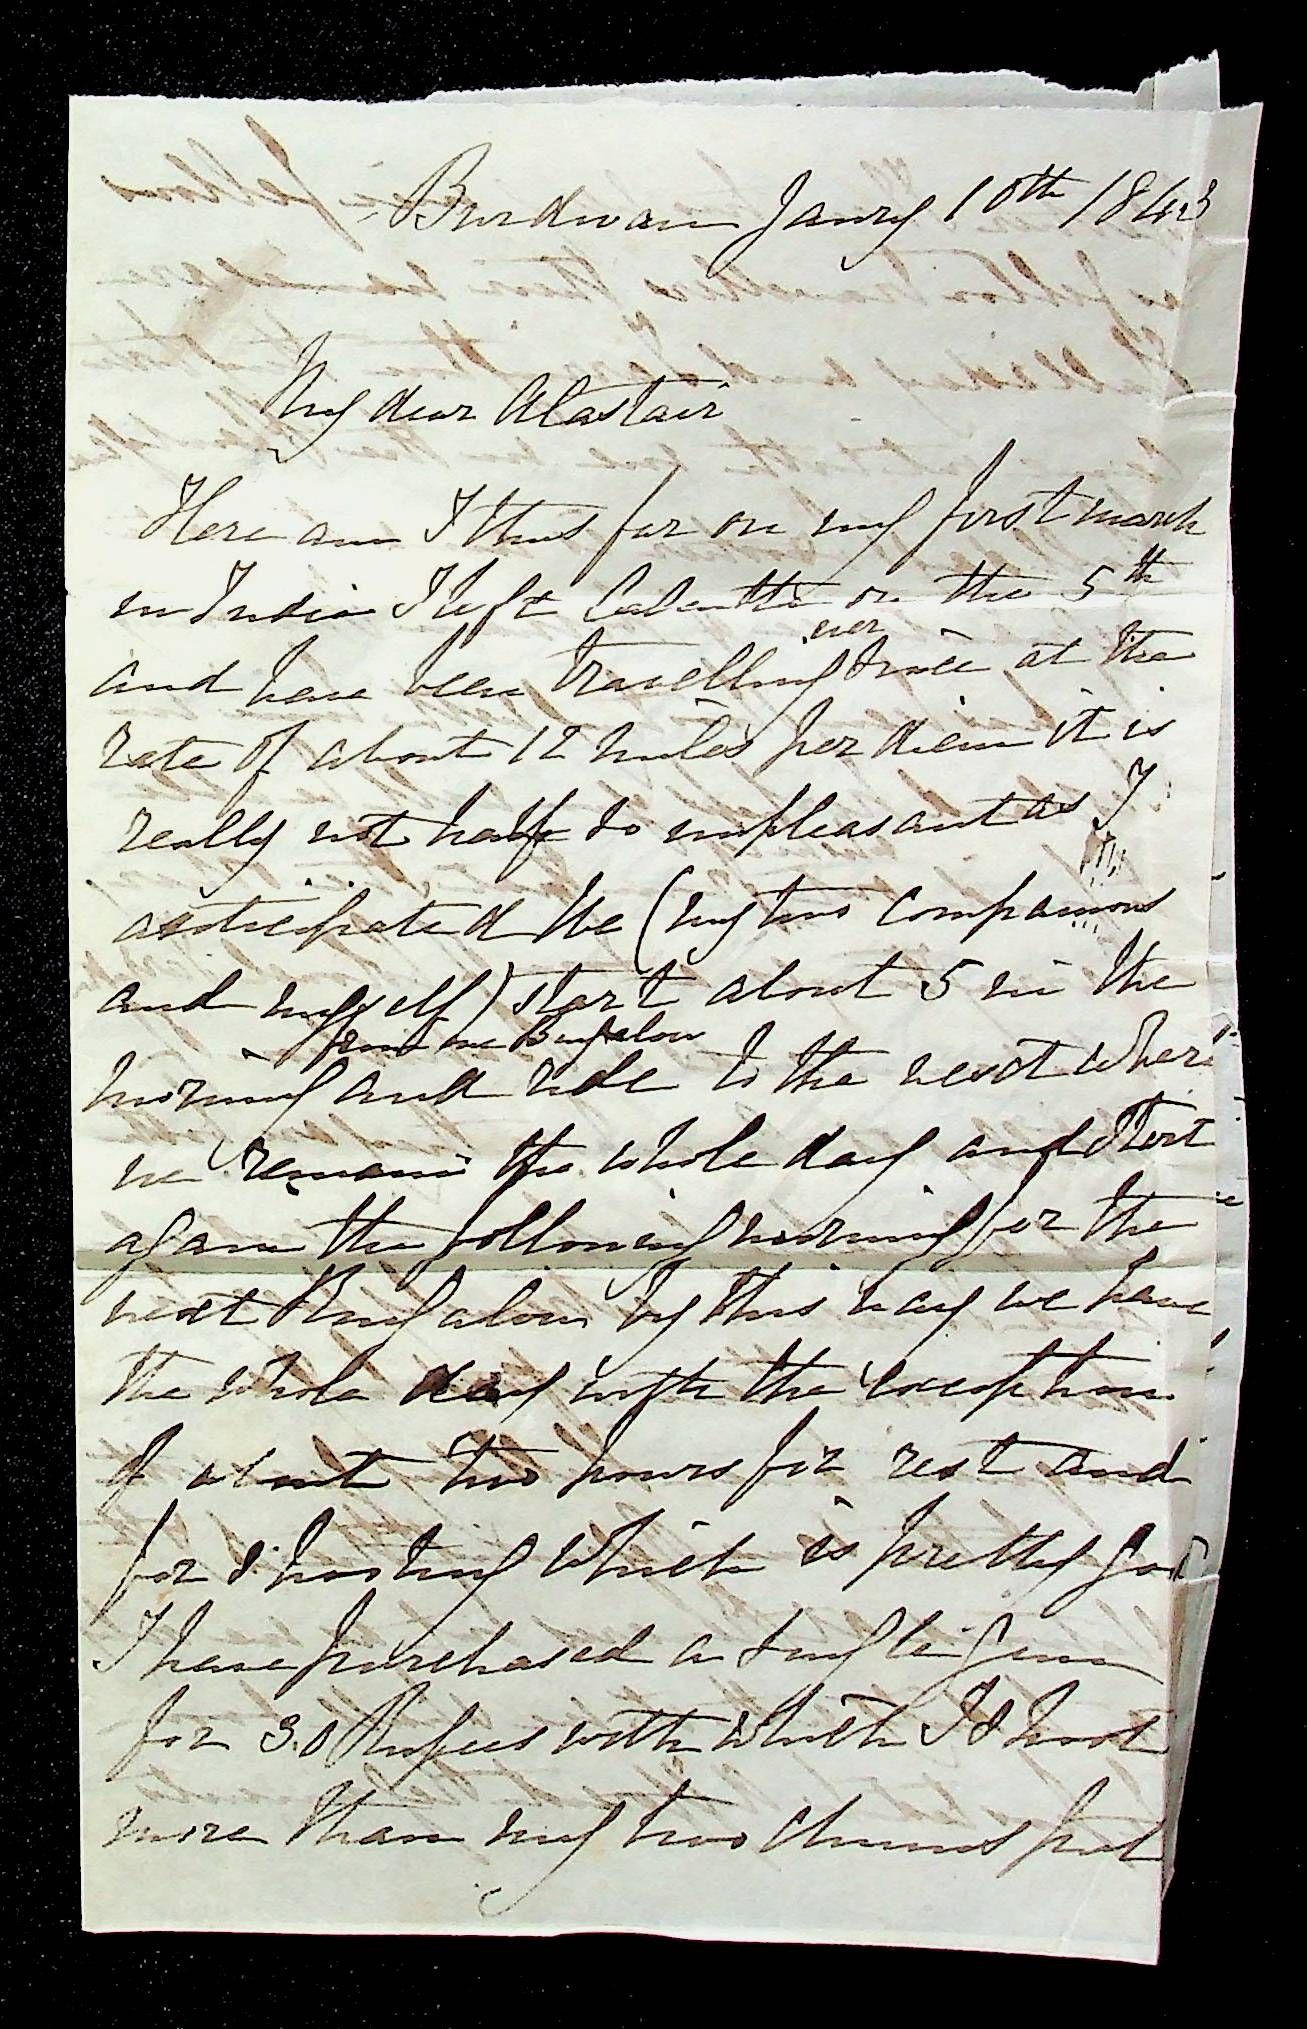 Burdwan Janry 10th 1843
My dear Alastair
Here am I thus far on my first march
in India I left Calcutta on the 5th
and have been travelling ever since at the
rate of about 12 miles per diem it is
really not half so unpleasant as I
anticipated We (my two companions
and myself) start about 5 in the
morning from one Bungalow and ride to the next where
we remain the whole day and start
again the following morning for the
next Bungalow by this way we have
the whole day with the exception
of about two hours for rest and
for shooting which is pretty good
I have purchased a single gun
for 30 Rupees with which I shoot
more than my two chums put